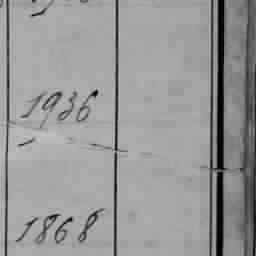 1936
1868